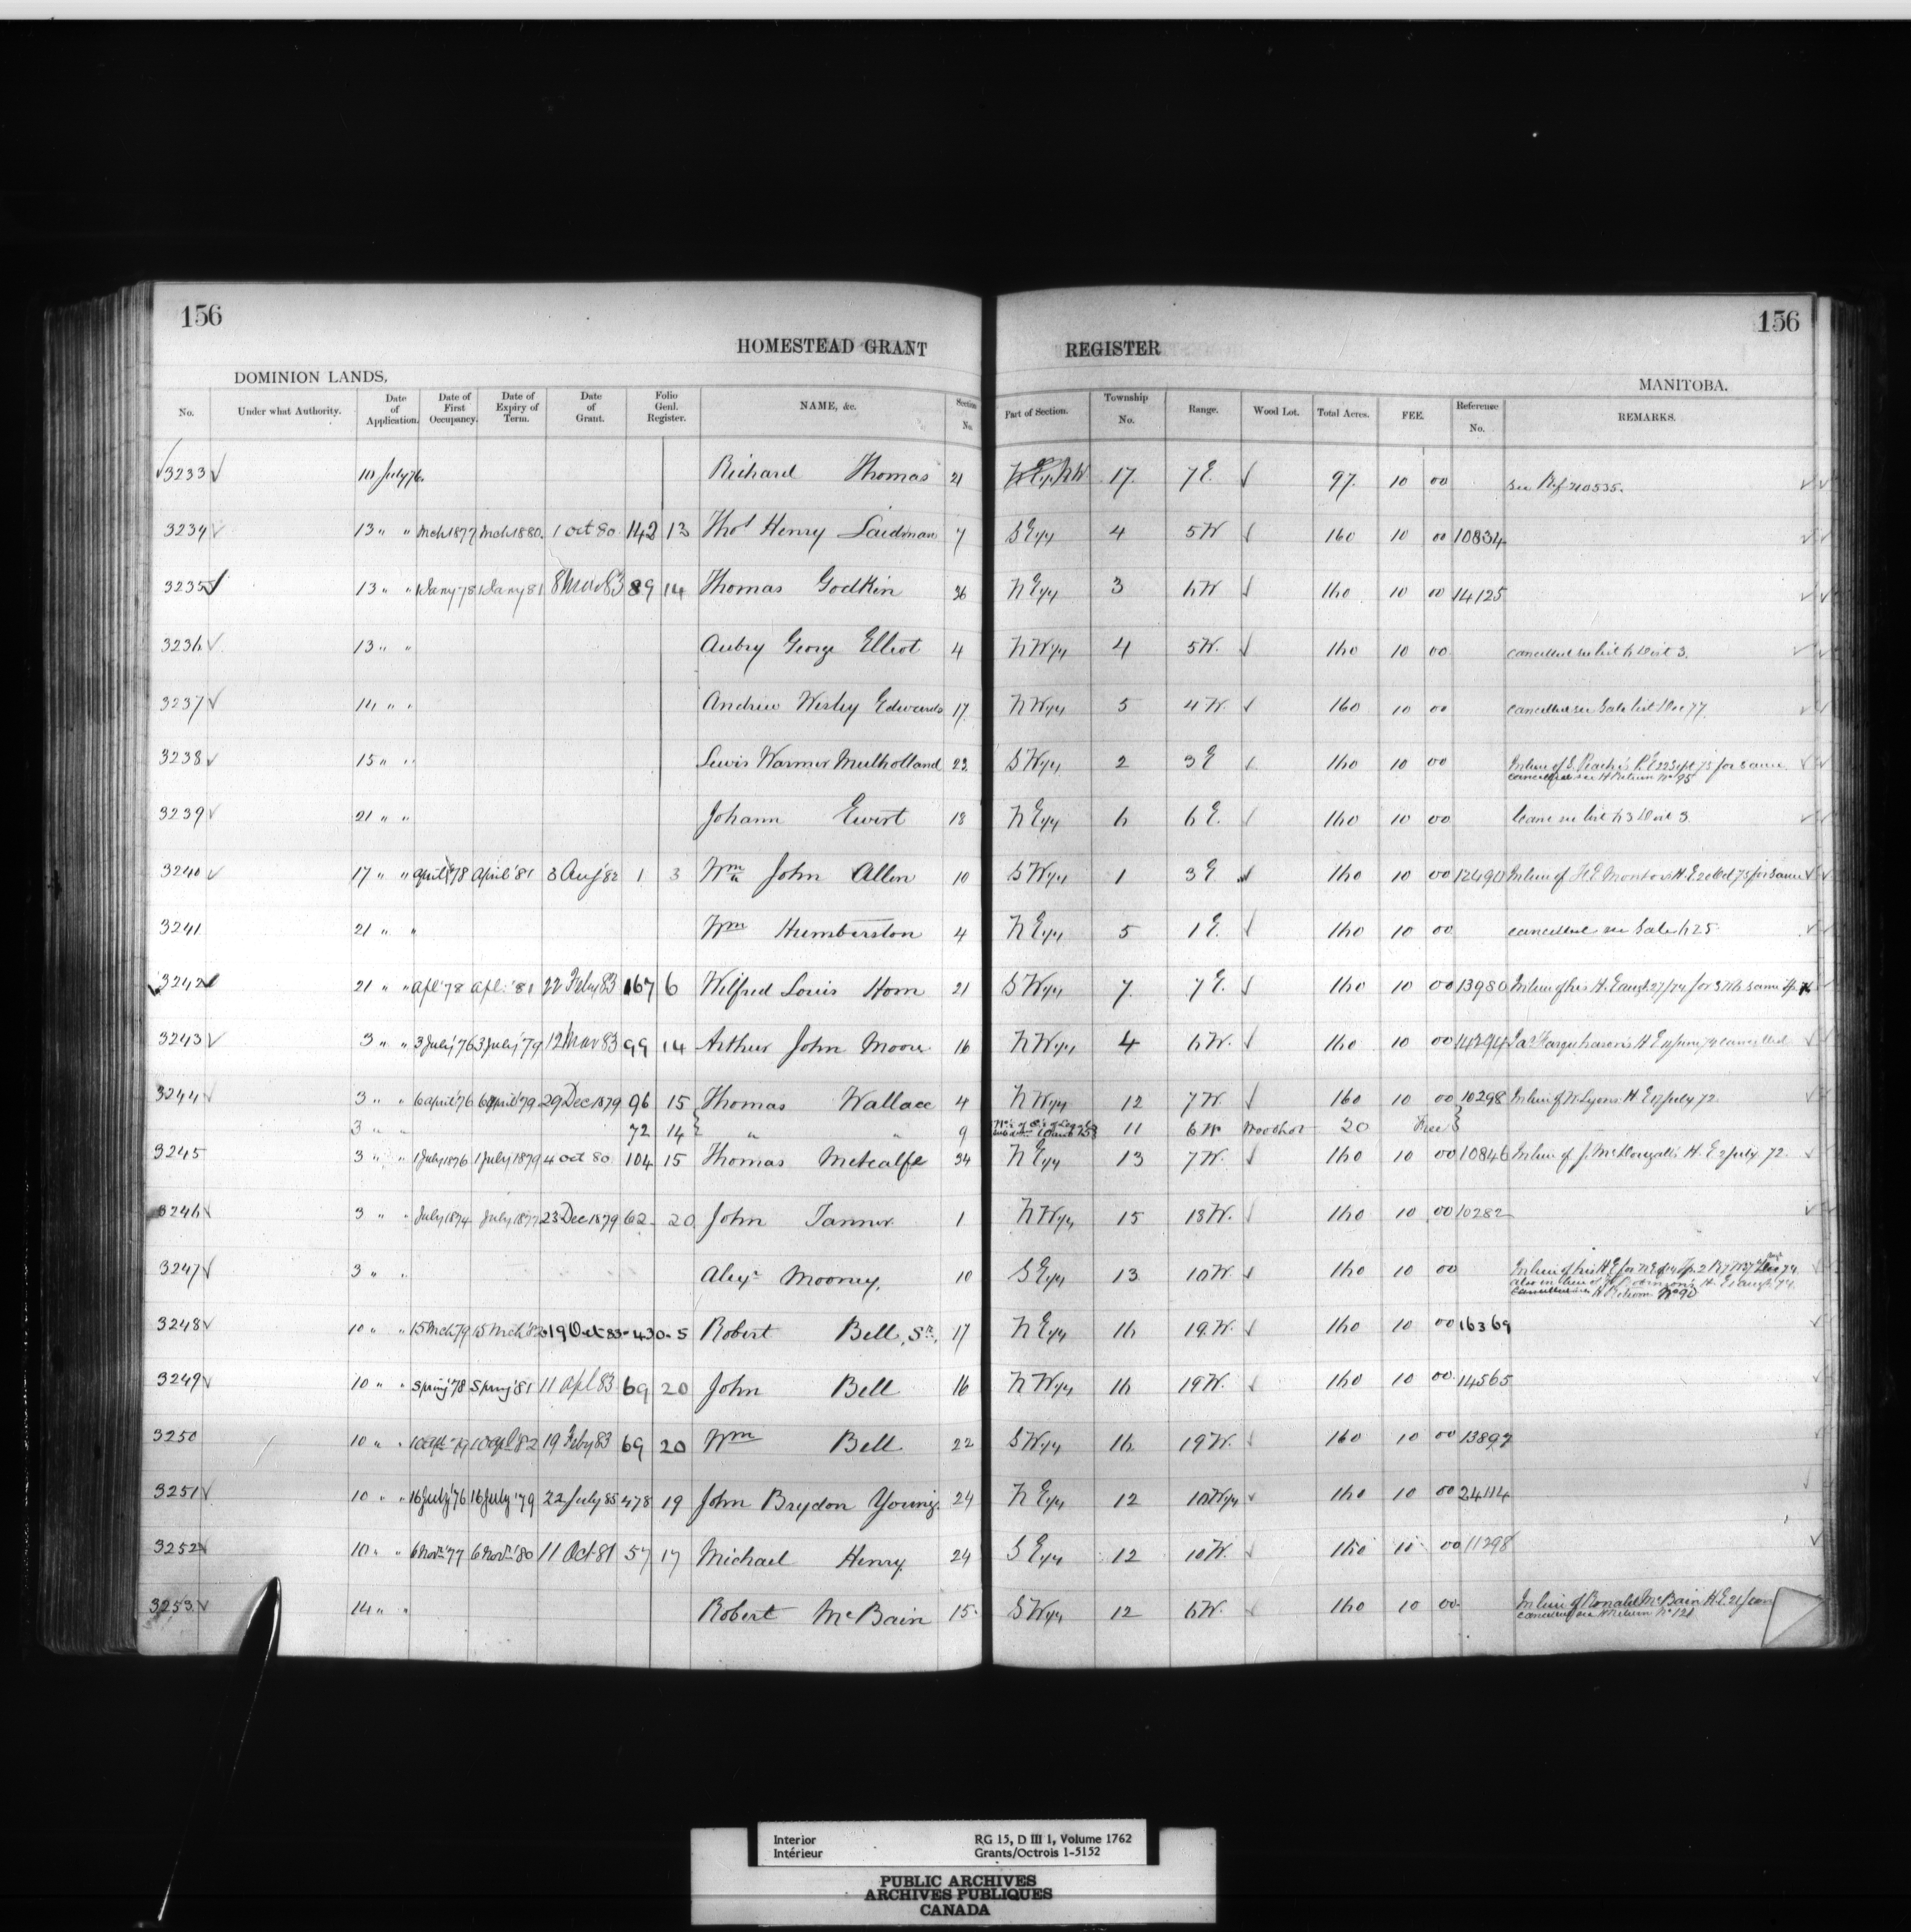 156
156
HOMESTEAD GRANT REGISTER
DOMINION LANDS,
MANITOBA.
No. Under what Authority. Date of Application. Date of First Occupancy. Date of Expiry of Term. Date of Grant. Folio Genl. Register. NAME, &c. Section No. Part of Section. Township No. Range. Wood Lot. Total Acres. FEE. Reference No. REMARKS.
3233 10 July 76. Richard Thomas 21 NW 17. 7 E. 97. 10 00 see Ref 210535.
3234 13 " " Mch 1877 Mch 1880. 1 Oct 80. 142 13 Thos Henry Laidman 7 S E ¼ 4 5 W 160 10 00 10834
3235 13 " " 1 Jany 78 1 Jany 81 8 Mar 83 89 14 Thomas Godkin 36 N E ¼ 3 6 W 160 10 00 14125
3236 13 " " Aubry George Elliot 4 N W ¼ 4 5 W. 160 10 00 cancelled see list 6 Dist 3.
3237 14 " " Andrew Wesley Edwards 17 N W ¼ 5 4 W. 160 10 00 cancelled see Sale list Dec 77
3238 15 " " Lewis Warmer Mulholland 22 S W ¼ 2 3 E 160 10 00 In lieu of S. 22 Sept 75 for same
cancelled see H Return No 95
3239 21 " " Johann Ewert 18 N E ¼ 6 6 E. 160 10 00 Canc see list 63 Dist 3.
3240 17 " " April 78 April '81 3 Aug '82 1 3 Wm John Allen 10 S W ¼ 1 3 E 160 10 00 12490 In lieu of H E 20 Oct 75 for same
3241 21 " " Wm Humberston 4 N E ¼ 5 1 E. 160 10 00 cancelled see Sale 625
3242 21 " " Apl '78 Apl '81 22 Feby 83 167 6 Wilfred Louis Horn 21 S W ¼ 7. 7 E. 160 10 00 13980 In lieu of his H. E Aug 27/74 for same
3243 3 " " 3 July '76 3 July '79 12 Mar 83 99 14 Arthur John Moore 16 N W ¼ 4 6 W. 160 10 00 14294 Jas Farquharson's H E cancelled
3244 3 " " 6 April '76 6 April '79 29 Dec 1879 96 15 Thomas Wallace 4 N W ¼ 12 7 W. 160 10 00 10298 In lieu of W Lyons H E July 72
3 " " 72 14 " " 9 11 6 W Woodlot 20 Free
3245 3 " " 1 July 1876 1 July 1879 4 Oct 80 104 15 Thomas Metcalfe 34 N E ¼ 13 7 W. 160 10 00 10846 In lieu of J. McDougall's H. E 2 July 72
3246 3 " " July 1874 July 1877 23 Dec 1879 62 20 John Tanner 1 N W ¼ 15 18 W. 160 10 00 10282
3247 3 " " Alexr Mooney. 10 S E ¼ 13 10 W. 160 10 00 In lieu of his H E for
also in lieu of Robinson's H. E Aug 74
cancelled see H Return No 90
3248 10 " " 15 Mch 79 15 Mch '82 19 Oct 83 430 5 Robert Bell, Sr. 17 N E ¼ 16 19 W. 160 10 00 16369
3249 10 " " Spring '78 Spring '81 11 Apl 83 69 20 John Bell 16 N W ¼ 16 19 W. 160 10 00 14565
3250 10 " " 10 Apl 79 10 Apl 82 19 Feby 83 69 20 Wm Bell 22 S W ¼ 16 19 W. 160 10 00 13897
3251 10 " " 16 July '76 16 July '79 22 July 85 478 19 John Brydon Young. 24 N E ¼ 12 10 W 160 10 00 24114
3252 10 " " 6 Novr '77 6 Novr '80 11 Oct 81 57 17 Michael Henry. 24 S E ¼ 12 10 W. 160 10 00 11298
3253 14 " " Robert McBain 15 S W ¼ 12 6 W. 160 10 00 In lieu of Ronald McBain H. E. 21
cancelled see H Return No 121
Interior RG 15, D III 1, Volume 1762
Intérieur Grants/Octrois 1-5152
PUBLIC ARCHIVES
ARCHIVES PUBLIQUES
CANADA